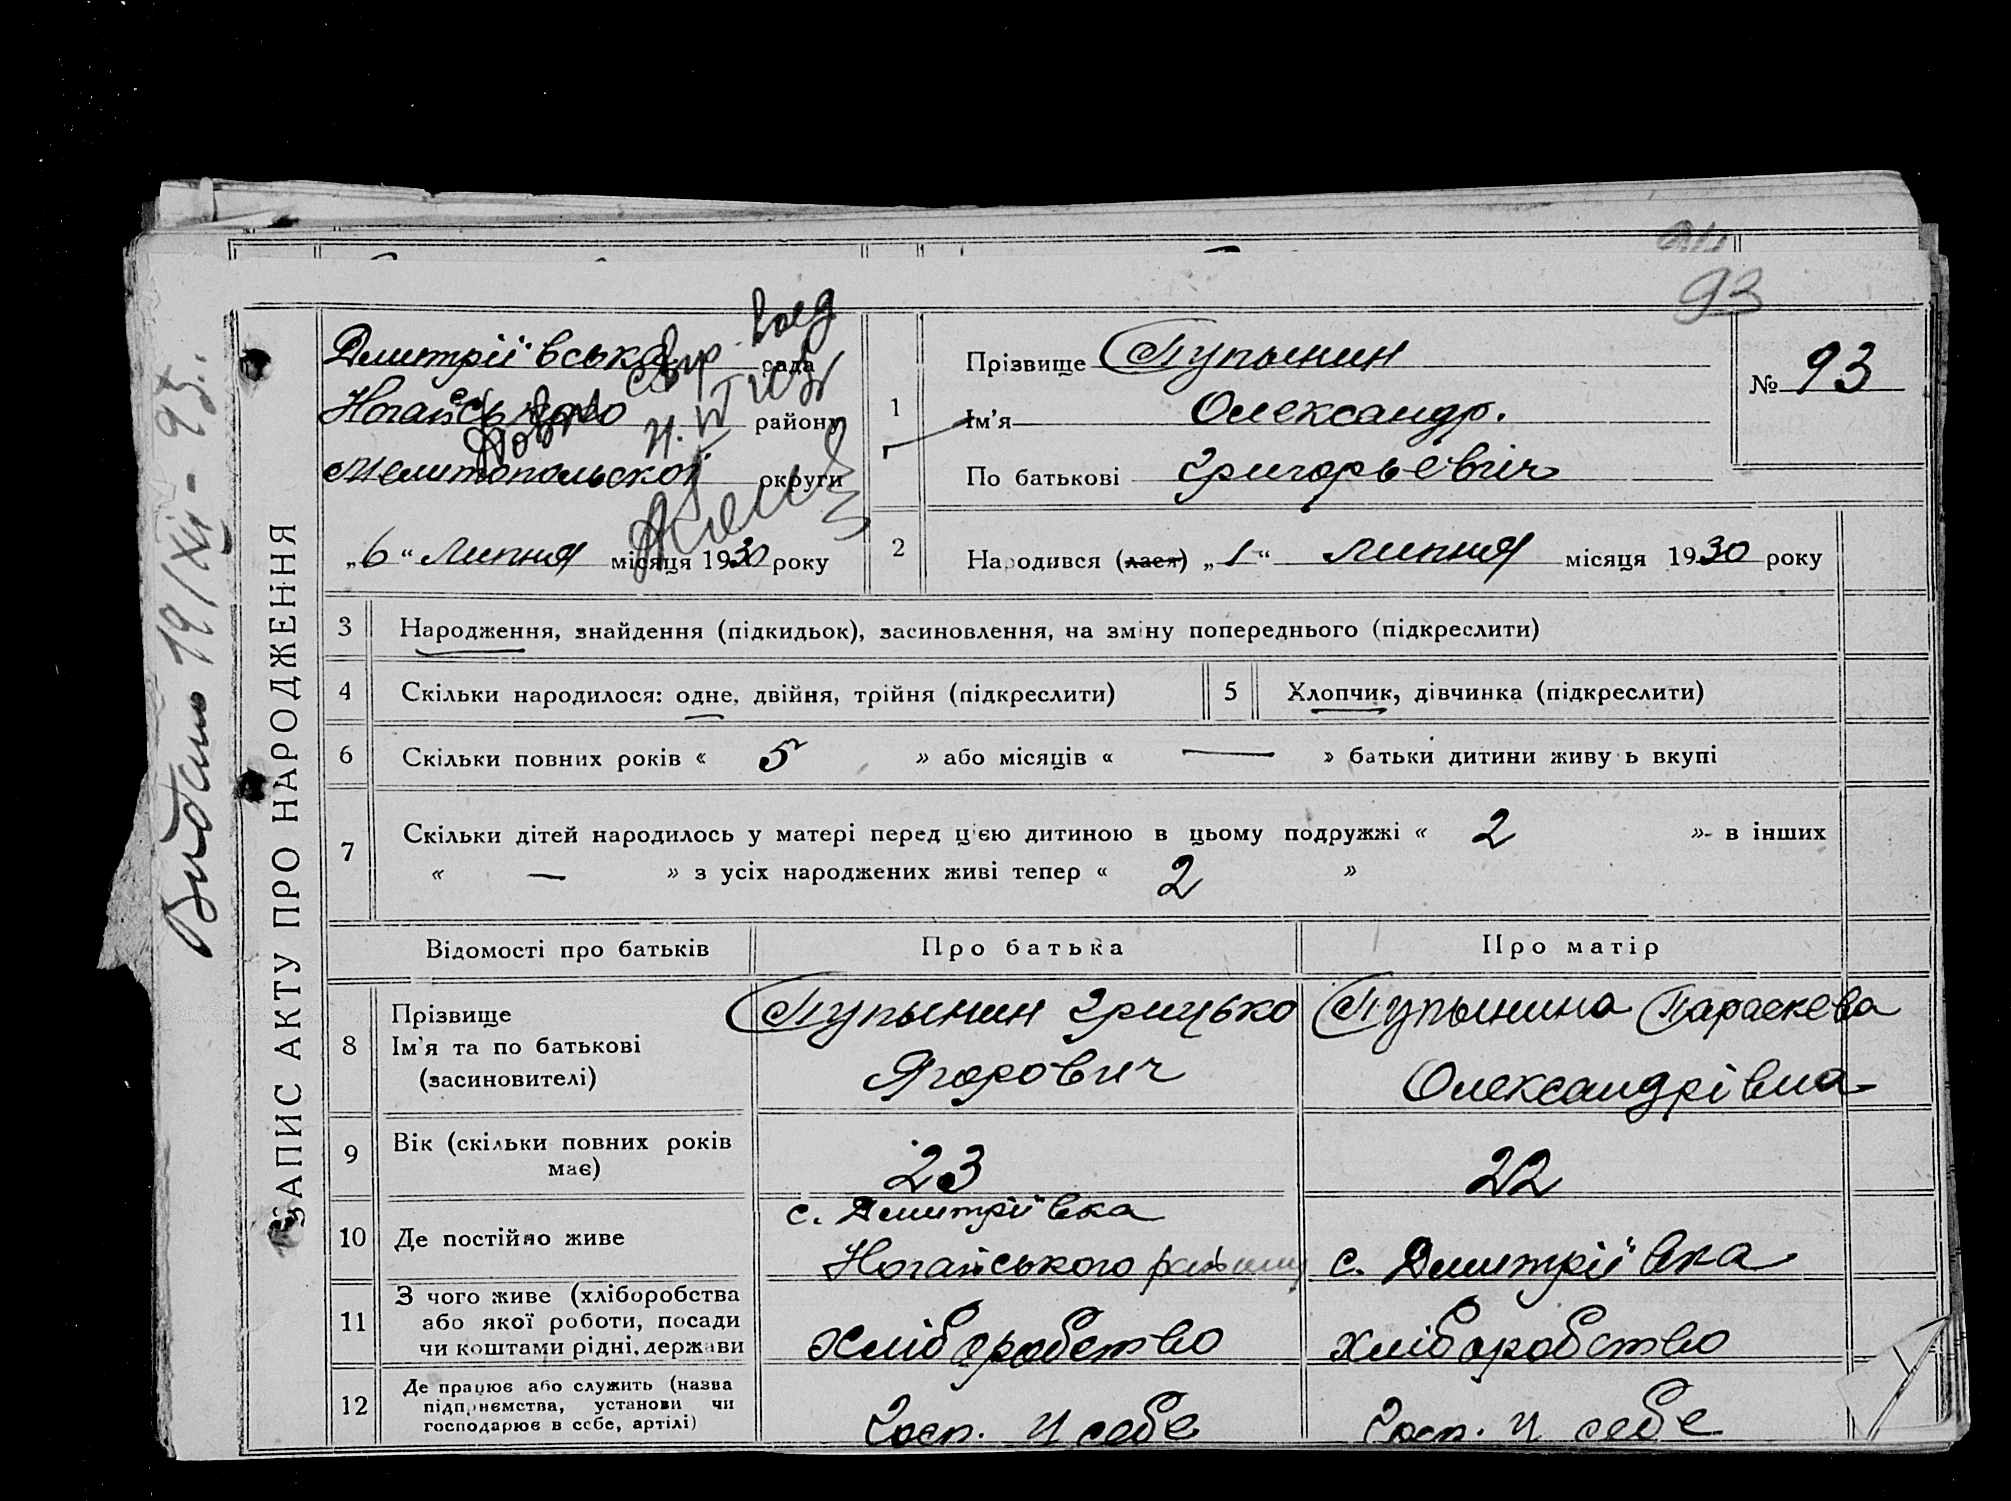 93
Видано 19/XI - 95.
ЗАПИС АКТУ ПРО НАРОДЖЕННЯ
Дмитріївська рада
Ногайського району
Мелитопольскої округи
„6“ Липня місяця 1930 року
1 Прізвище Пупынин
Ім'я Олександр.
По батькові Григорьевіч
№ 93
2 Народився (лася) „1“ Липня місяця 1930 року
3 Народження, знайдення (підкидьок), засиновлення, на зміну попереднього (підкреслити)
4 Скільки народилося: одне, двійня, трійня (підкреслити) 5 Хлопчик, дівчинка (підкреслити)
6 Скільки повних років « 5 » або місяців « — » батьки дитини живу ь вкупі
7 Скільки дітей народилось у матері перед цією дитиною в цьому подружжі « 2 » в інших
« — » з усіх народжених живі тепер « 2 »
Відомості про батьків Про батька Про матір
8 Прізвище
Ім'я та по батькові
(засиновителі)
Пупынин Грицько
Ягорович
Пупынина Параскева
Олександрівна
9 Вік (скільки повних років
має)
23 22
10 Де постійно живе
с. Дмитріївка
Ногайського району
с. Дмитріївка
11 З чого живе (хліборобства
або якої роботи, посади
чи коштами рідні, держави
хліборобство хліборобство
12 Де працює або служить (назва
підприємства, установи чи
господарює в себе, артілі)
Госп. у себе Госп. у себе